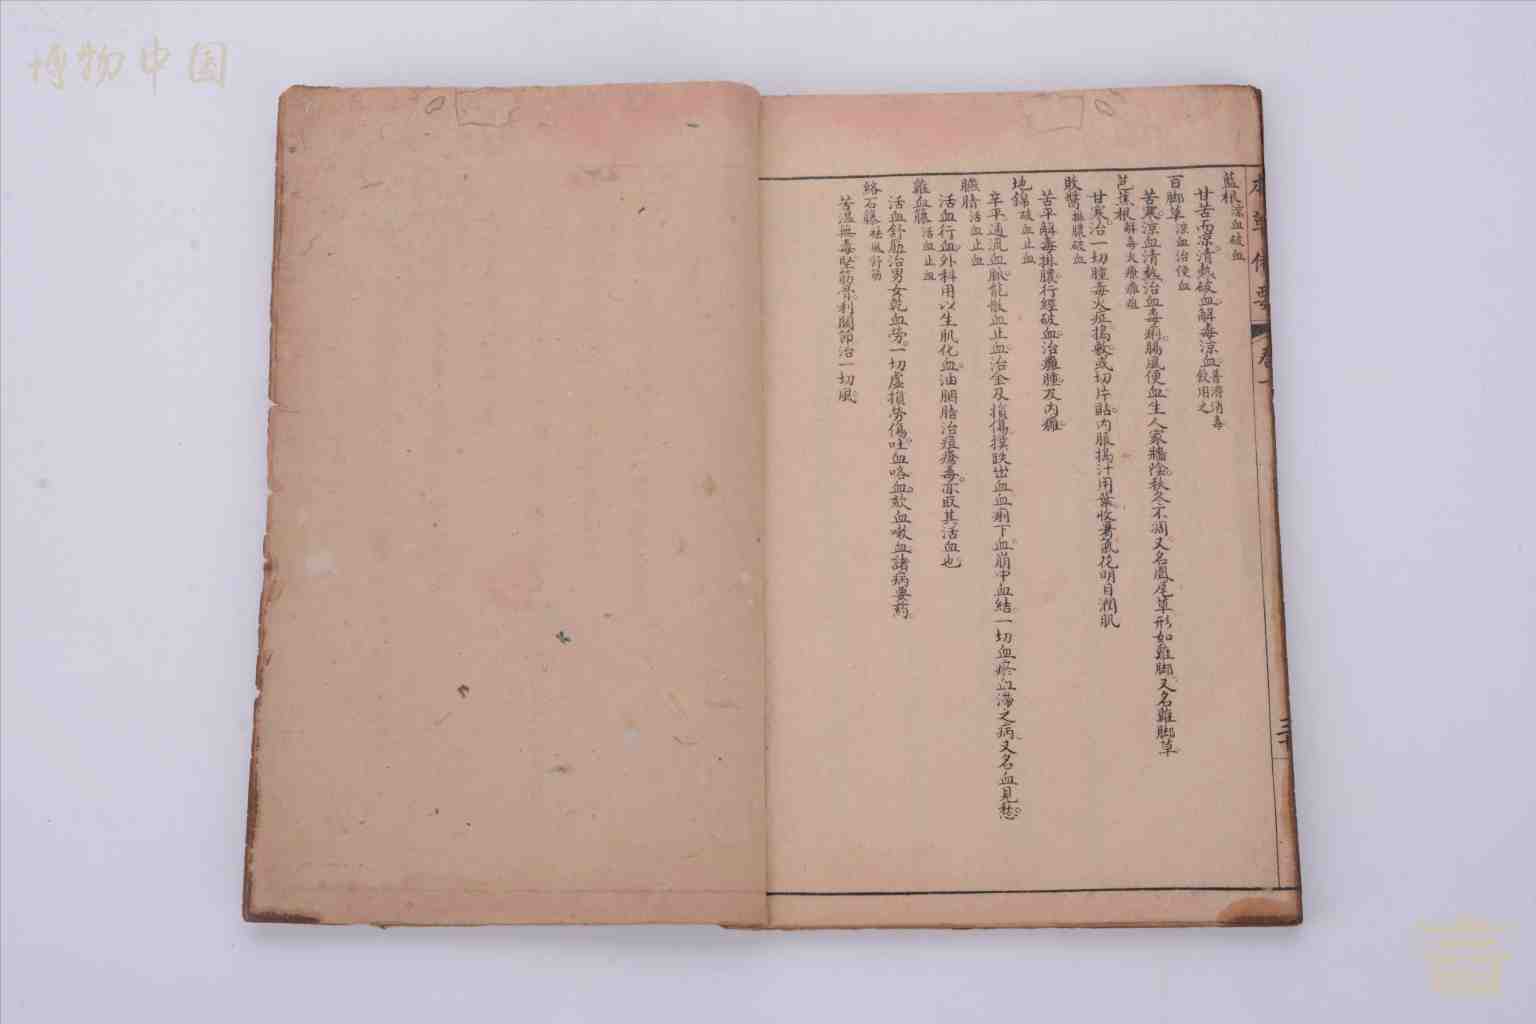 博物中国
藍根涼血破血
甘苦而涼。清熱破血。解毒涼血。普濟消毒飲用之
百脚草涼血治便血
苦寒。涼血清熱。治血毒痢。腸風便血。生人家牆陰。秋冬不凋。又名鳳尾草。形如雞脚。又名雞脚草。
芭蕉根解毒火療癰疽
甘寒。治一切腫毒火症。搗敷或切片貼。內服搗汁用。葉收暑氣。花明目潤肌
敗醬排膿破血
苦平。解毒排膿。行經破血。治癰腫及內癰。
地錦破血止血
辛平。通流血脈。能散血止血。治金及損傷撲跌出血。血痢下血。崩中血結。一切血瘀血滯之病。又名血見愁。
臙脂活血止血
活血行血。外科用以生肌化血。油胭脂治痘瘡毒。亦取其活血也。
雞血藤活血止血
活血舒筋。治男女乾血勞。一切虛損勞傷。吐血咯血。欬血嗽血。諸病要葯。
絡石藤祛風舒筋
苦溫無毒。堅筋骨。利關節。治一切風。